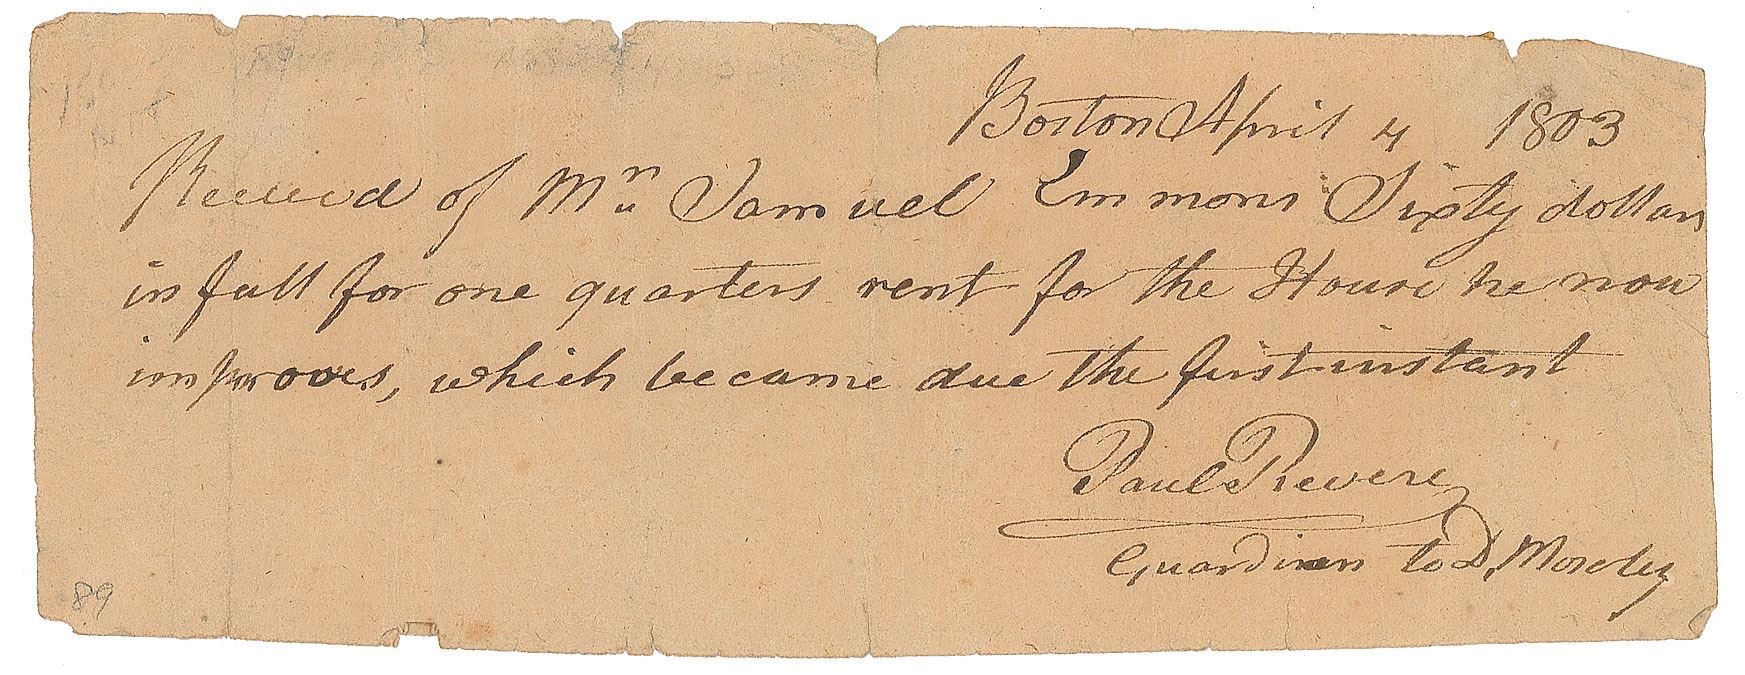 Boston April 4 1803
Received of Mr. Samuel Emmons Sixty dollars
in full for one quarters rent for the House he now
improves, which became due the first instant
Paul Revere
Guardian to D. Moseley
89